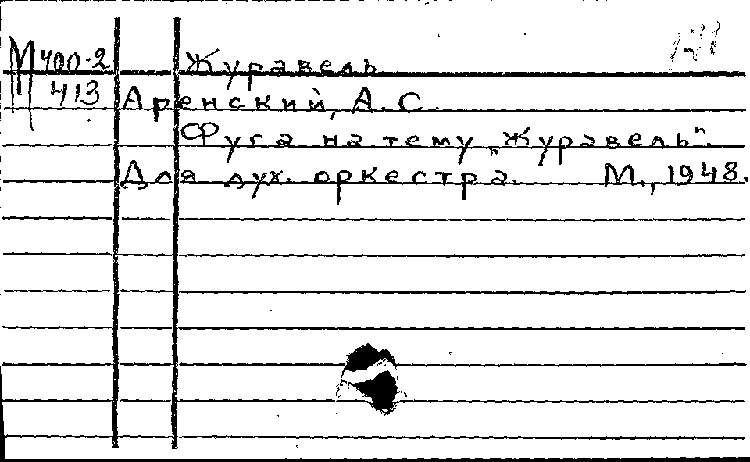 М 400-2 Журавель
413 Аренский, А. С.
Фуга на тему „Журавель".
Для дух. оркестра. М., 1948.